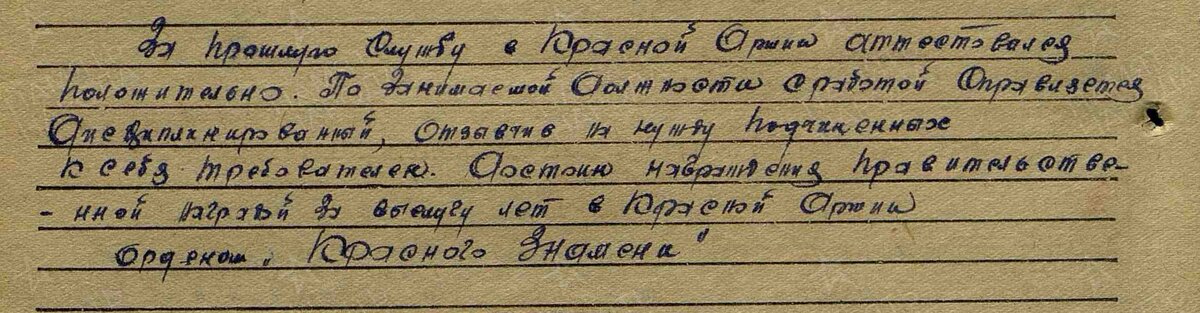 За прошлую службу в Красной Армии аттестовался
положительно. По занимаемой должности с работой справляется
Дисциплинированный, отзывчив на нужды подчиненных
к себе требователен. Достоин награждения правительстве-
- нной наградой за выслугу лет в Красной Армии
орденом „Красного Знамени"